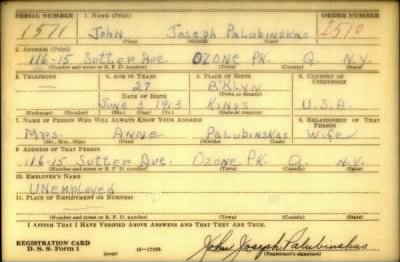 SERIAL NUMBER 1. NAME (Print) ORDER NUMBER
1571 John Joseph Palubinskas 2510
(First) (Middle) (Last)
2. ADDRESS (Print)
116-15 Sutter Ave Ozone Pk. Q. N.Y.
(Number and street or R. F. D. number) (Town) (County) (State)
3. TELEPHONE 4. AGE IN YEARS 5. PLACE OF BIRTH 6. COUNTRY OF CITIZENSHIP
27 B'KLYN
(Town or county)
DATE OF BIRTH
June 3 1913 Kings U.S.A.
(Exchange) (No.) (Mo.) (Day) (Yr.) (State or country)
7. NAME OF PERSON WHO WILL ALWAYS KNOW YOUR ADDRESS 8. RELATIONSHIP OF THAT PERSON
Mrs. Anne Palubinskas Wife
(Mr., Mrs., Miss) (First) (Middle) (Last)
9. ADDRESS OF THAT PERSON
116-15 Sutter Ave. Ozone Pk. Q. N.Y.
(Number and street or R. F. D. number) (Town) (County) (State)
10. EMPLOYER'S NAME
Unemployed
11. PLACE OF EMPLOYMENT OR BUSINESS
(Number and street or R. F. D. number) (Town) (County) (State)
I AFFIRM THAT I HAVE VERIFIED ABOVE ANSWERS AND THAT THEY ARE TRUE.
REGISTRATION CARD
D. S. S. Form 1 (over) John Joseph Palubinskas
(Registrant's signature)